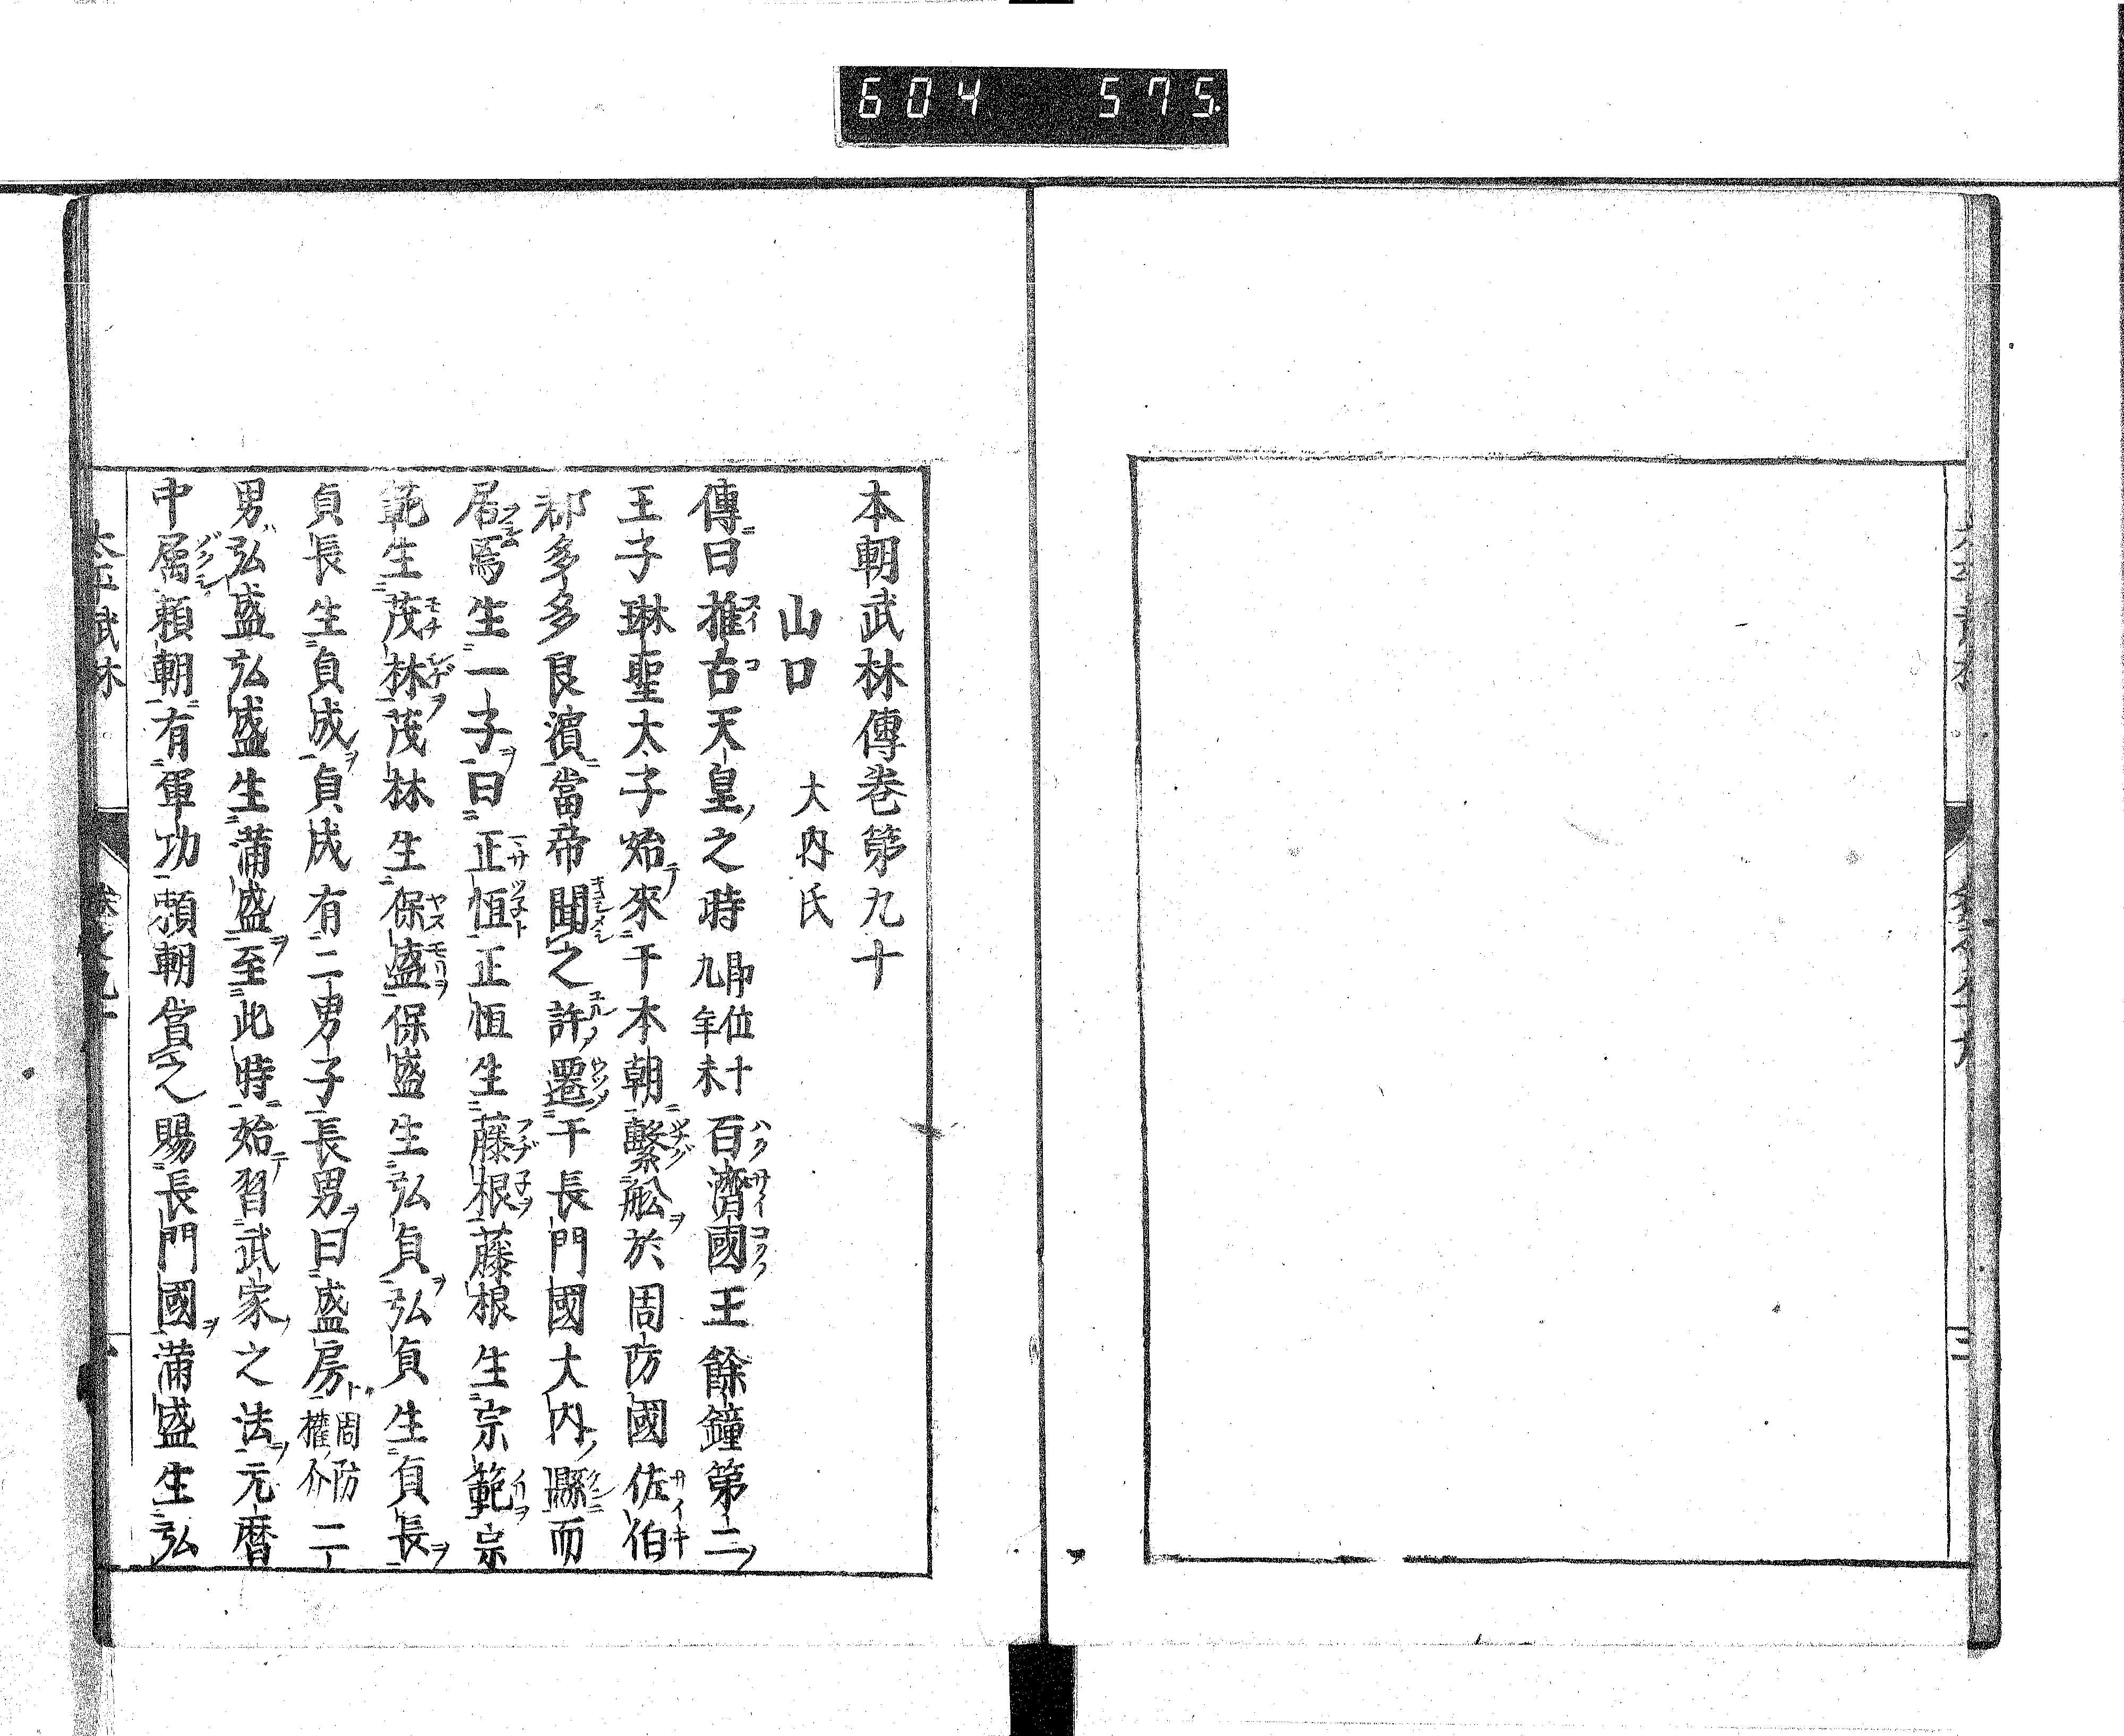 604 575
本朝武林傳巻第九十
山口 大内氏
傳曰推古天皇之時即位十九年未百濟國王餘鐘第二
王子琳聖太子始來于本朝繋舩於周防國佐伯
郡多多良濱當帝聞之許遷于長門國大内縣而
居焉生一子曰正恒正恒生藤根藤根生宗範宗
範生茂林茂林生保盛保盛生弘貞弘貞生貞長
貞長生貞成貞成有二男子長男曰盛房周防權介二
男弘盛弘盛生蒲盛至此時始習武家之法元暦
中属頼朝有軍功頼朝賞之賜長門國蒲盛生弘